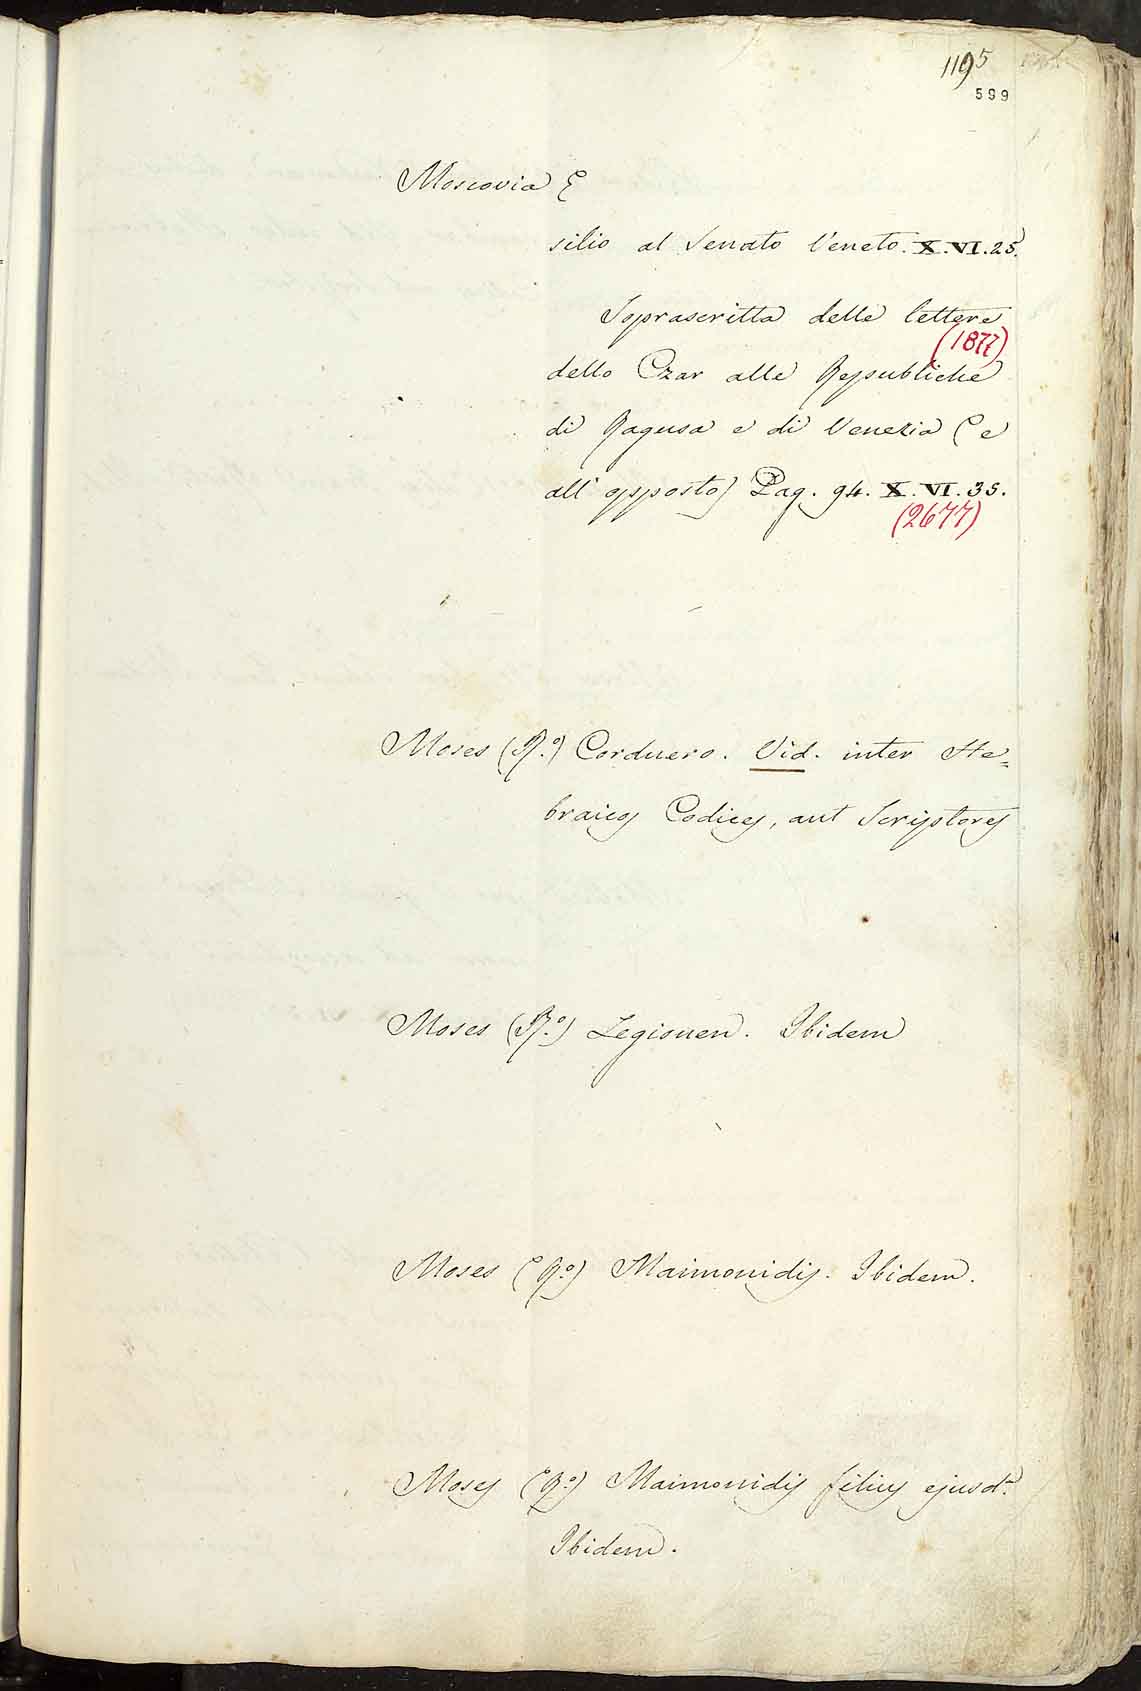 1195
599
Moscovia E
silio al Senato Veneto. X. VI. 25.
Soprascritta delle lettere
(1877)
dello Czar alle Republiche
di Ragusa e di Venezia (e
all' opposto) Pag. 94. X. VI. 35.
(2677)
Moses (R.º) Corduero. Vid. inter He=
braicos Codices, aut Scriptores
Moses (R.º) Legionen. Ibidem
Moses (R.º) Maimonidis. Ibidem.
Moses (R.º) Maimonidis filius ejusd.
Ibidem.